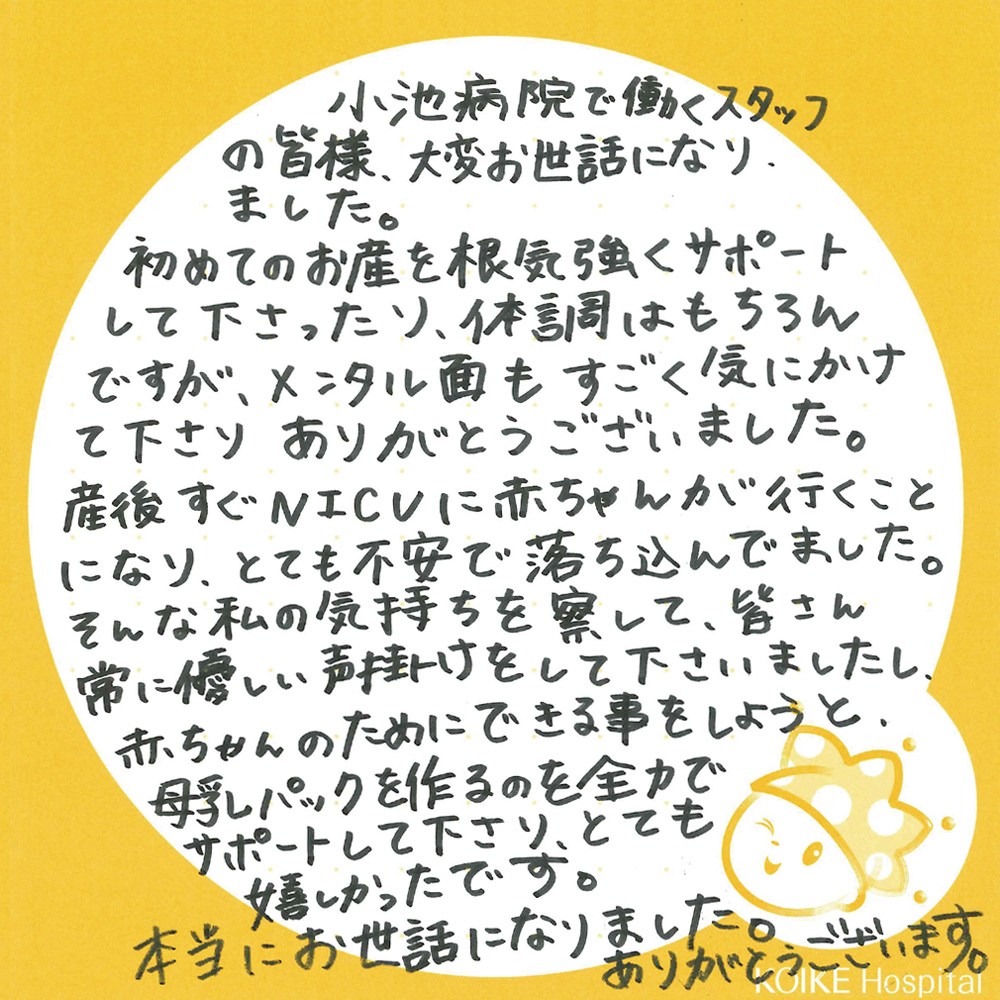 小池病院で働くスタッフ
の皆様、大変お世話になり
ました。
初めてのお産を根気強くサポート
して下さったり、体調はもちろん
ですが、メンタル面もすごく気にかけ
て下さり ありがとうございました。
産後すぐNICUに赤ちゃんが行くこと
になり、とても不安で落ち込んでました。
そんな私の気持ちを察して、皆さん
常に優しい声掛けをして下さいましたし、
赤ちゃんのためにできる事をしようと、
母乳パックを作るのを全力で
サポートして下さり、とても
嬉しかったです。
本当にお世話になりました。
ありがとうございます。
KOIKE Hospital